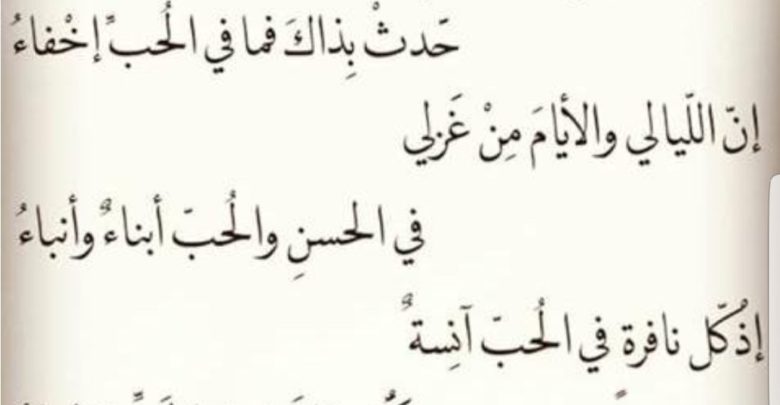 حّدثْ بِذاكَ فما في الُحب ًإخْفاءُ
إنّ اللّيالي والأيامَ مِنْ غَزَلي
في الحسنِ والُحبّ أبناءٌ وأنباءُ
إذْ كّل نافرة في الُحبّ آنِسةٌ